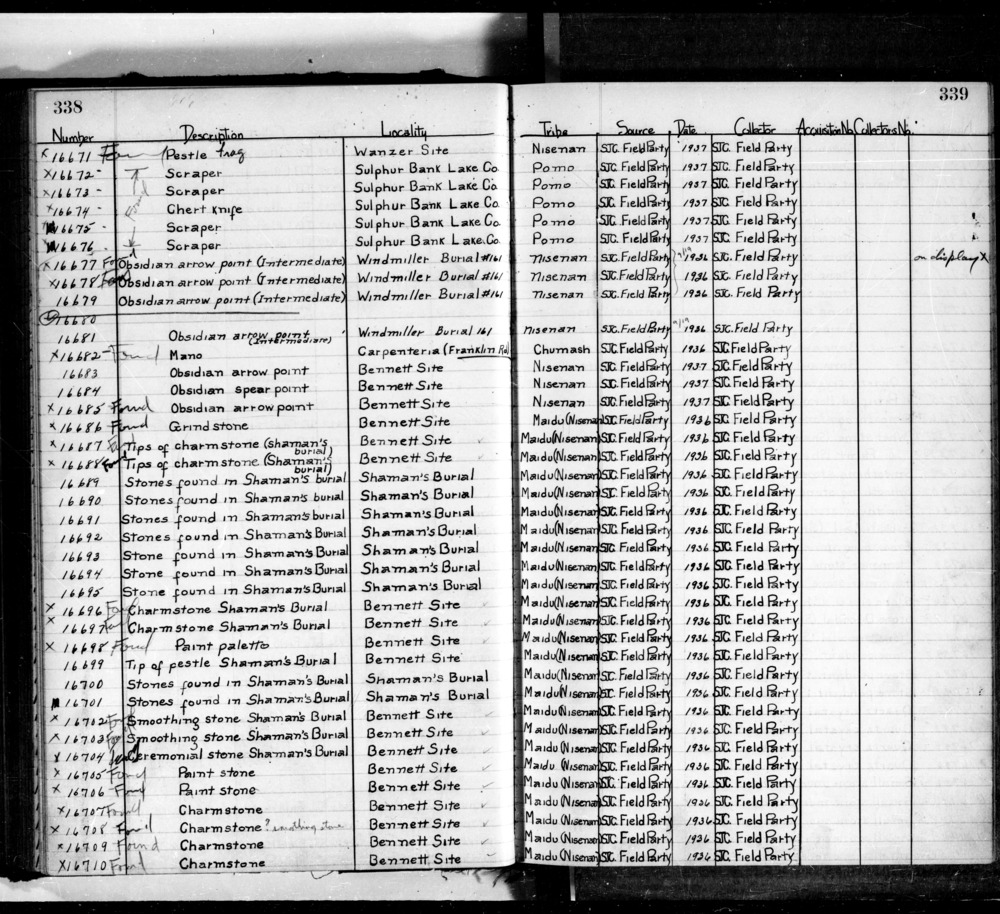 338
Number Description Locality
x 16671 Found Pestle frag Wanzer Site
x 16672 - Scraper Sulphur Bank Lake Co.
x 16673 - Scraper Sulphur Bank Lake Co.
x 16674 - Found Chert knife Sulphur Bank Lake Co.
16675 - Scraper Sulphur Bank Lake Co.
16676 - Scraper Sulphur Bank Lake Co.
x 16677 Found Obsidian arrow point (Intermediate) Windmiller Burial #161
x 16678 Found Obsidian arrow point (Intermediate) Windmiller Burial #161
16679 Obsidian arrow point (Intermediate) Windmiller Burial #161
16680
16681 Obsidian arrow point (Intermediate) Windmiller Burial 161
x 16682 - Found Mano Carpenteria (Franklin Rd)
16683 Obsidian arrow point Bennett Site
16684 Obsidian spear point Bennett Site
x 16685 Found Obsidian arrow point Bennett Site
x 16686 Found Grindstone Bennett Site
x 16687 Found Tips of charmstone (shaman's burial) Bennett Site
x 16688 Found Tips of charmstone (Shaman's burial) Bennett Site
16689 Stones found in Shaman's burial Shaman's Burial
16690 Stones found in Shaman's burial Shaman's Burial
16691 Stones found in Shaman's burial Shaman's Burial
16692 Stones found in Shaman's Burial Shaman's Burial
16693 Stone found in Shaman's Burial Shaman's Burial
16694 Stone found in Shaman's Burial Shaman's Burial
16695 Stone found in Shaman's Burial Shaman's Burial
x 16696 Found Charmstone Shaman's Burial Bennett Site
x 16697 Found Charmstone Shaman's Burial Bennett Site
x 16698 Found Paint palette Bennett Site
16699 Tip of pestle Shaman's Burial Bennett Site
16700 Stones found in Shaman's Burial Shaman's Burial
16701 Stones found in Shaman's Burial Shaman's Burial
x 16702 Found Smoothing stone Shaman's Burial Bennett Site
x 16703 Found Smoothing stone Shaman's Burial Bennett Site
x 16704 Found Ceremonial stone Shaman's Burial Bennett Site
x 16705 Found Paint stone Bennett Site
x 16706 Found Paint stone Bennett Site
x 16707 Found Charmstone Bennett Site
x 16708 Found Charmstone ? smoothing stone Bennett Site
x 16709 Found Charmstone Bennett Site
x 16710 Found Charmstone Bennett Site
339
Tribe Source Date Collector Acquisition No. Collectors No.
Nisenan SJC. Field Party 1937 SJC. Field Party
Pomo SJC. Field Party 1937 SJC. Field Party
Pomo SJC. Field Party 1937 SJC. Field Party
Pomo SJC. Field Party 1937 SJC. Field Party
Pomo SJC. Field Party 1937 SJC. Field Party
Pomo SJC. Field Party 1937 SJC. Field Party
Nisenan SJC. Field Party 1936 SJC. Field Party on display x
Nisenan SJC. Field Party 1936 SJC. Field Party
Nisenan SJC. Field Party 1936 SJC. Field Party
Nisenan SJC. Field Party 1936 SJC. Field Party
Chumash SJC. Field Party 1936 SJC Field Party
Nisenan SJC. Field Party 1937 SJC. Field Party
Nisenan SJC. Field Party 1937 SJC. Field Party
Nisenan SJC. Field Party 1937 SJC. Field Party
Maidu (Nisenan) SJC. Field Party 1936 SJC. Field Party
Maidu (Nisenan) SJC. Field Party 1936 SJC. Field Party
Maidu (Nisenan) SJC. Field Party 1936 SJC. Field Party
Maidu (Nisenan) SJC. Field Party 1936 SJC. Field Party
Maidu (Nisenan) SJC. Field Party 1936 SJC. Field Party
Maidu (Nisenan) SJC. Field Party 1936 SJC. Field Party
Maidu (Nisenan) SJC. Field Party 1936 SJC. Field Party
Maidu (Nisenan) SJC. Field Party 1936 SJC. Field Party
Maidu (Nisenan) SJC. Field Party 1936 SJC. Field Party
Maidu (Nisenan) SJC. Field Party 1936 SJC. Field Party
Maidu (Nisenan) SJC. Field Party 1936 SJC. Field Party
Maidu (Nisenan) SJC. Field Party 1936 SJC. Field Party
Maidu (Nisenan) SJC. Field Party 1936 SJC. Field Party
Maidu (Nisenan) SJC. Field Party 1936 SJC. Field Party
Maidu (Nisenan) SJC. Field Party 1936 SJC. Field Party
Maidu (Nisenan) SJC. Field Party 1936 SJC. Field Party
Maidu (Nisenan) SJC. Field Party 1936 SJC. Field Party
Maidu (Nisenan) SJC. Field Party 1936 SJC. Field Party
Maidu (Nisenan) SJC. Field Party 1936 SJC. Field Party
Maidu (Nisenan) SJC. Field Party 1936 SJC. Field Party
Maidu (Nisenan) SJC. Field Party 1936 SJC. Field Party
Maidu (Nisenan) SJC. Field Party 1936 SJC. Field Party
Maidu (Nisenan) SJC. Field Party 1936 SJC. Field Party
Maidu (Nisenan) SJC. Field Party 1936 SJC. Field Party
Maidu (Nisenan) SJC. Field Party 1936 SJC. Field Party